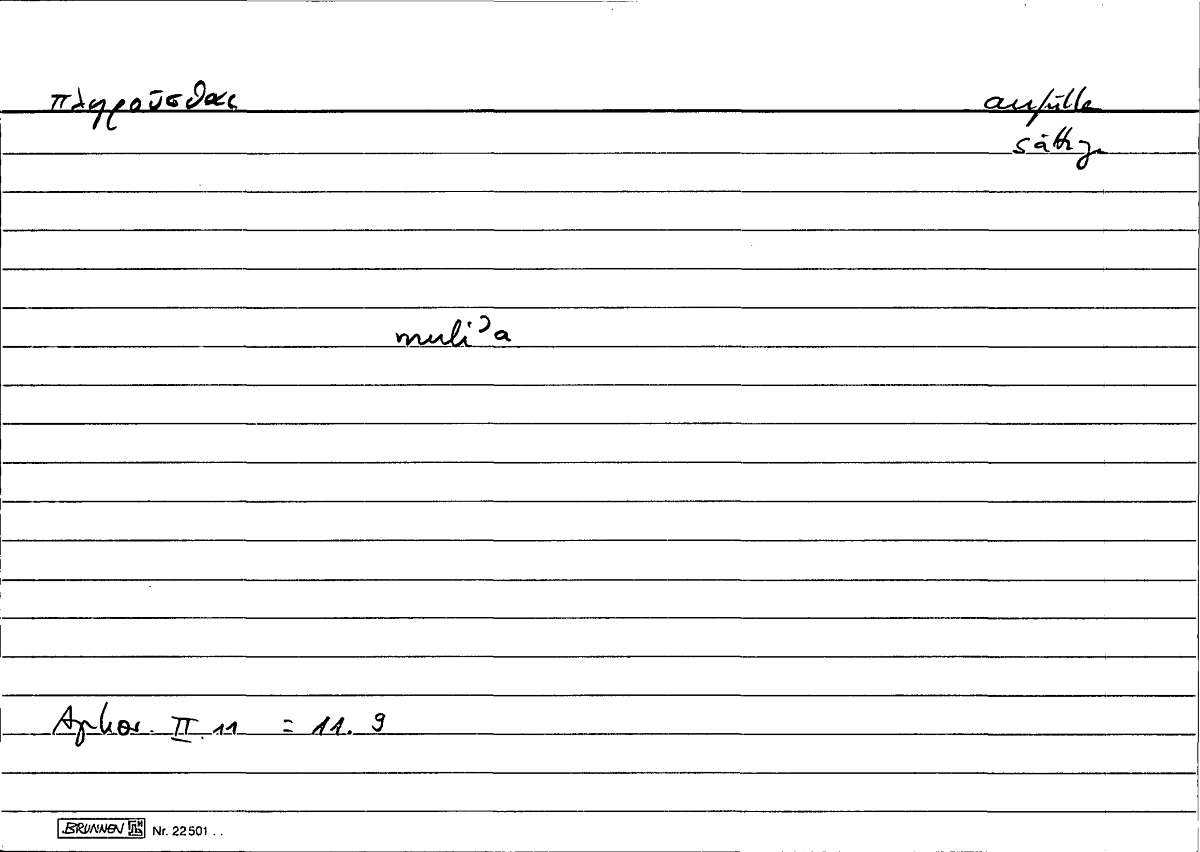 πληροῦσθαι anfülle
sättig
muliʾa
Aphor. II. 11 = 11. 9
BRUNNEN Nr. 22501 . .